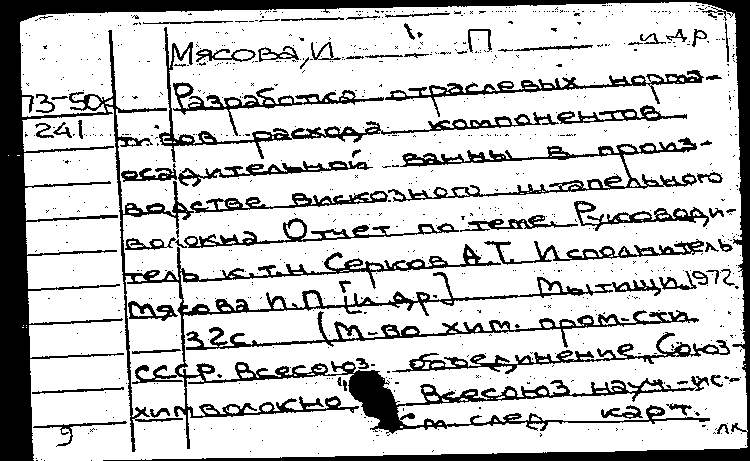 Мясова, И. П. и др
73-50к Разработка отраслевых норма-
241 тивов расхода компонентов
осадительной ванны в произ-
водстве вискозного штапельного
волокна Отчет по теме. Руководи-
тель к.т.н. Серков А.Т. Исполнитель
Мясова И.П. [и др.] Мытищи. 1972
32с. (М-во хим. пром-сти
СССР. Всесоюз. объединение "Союз-
химволокно". Всесоюз. науч.-ис-
9 См. след. карт.
пк